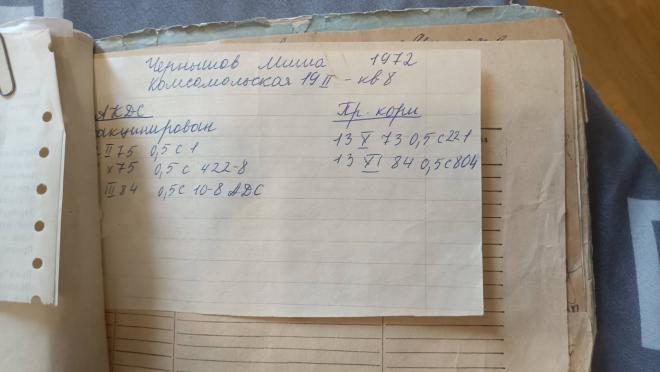 Чернышов Миша 1972
Комсомольская 19 II - кв 8
АКДС
акцинирован
II 75 0,5 с 1
X 75 0,5 с 422-8
III 84 0,5 с 10-8 АДС
Пр. кори
13 X 73 0,5 с 221
13 XI 84 0,5 с 804